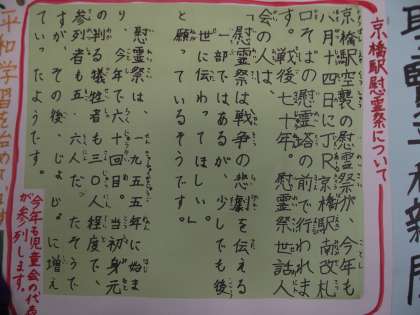 京橋駅慰霊祭について
京橋駅空襲の慰霊祭が、今年も
八月十四日にJR京橋駅南改札
口そばの慰霊塔の前で行われま
す。戦後七十年。慰霊祭世話人
会の人は、
「慰霊祭は戦争の悲劇を伝える
一部ではあるが、少しでも後
世に伝わってほしい。」
と願っているそうです。
慰霊祭は、一九五五年に始ま
り、今年で六十回目。当初、身元
の判る犠牲者も三〇人程度で、
参列者も五、六人だったそうで
すが、その後、じょじょに増え
ていったようです。
今年も児童会の代表
が参列します。
平和学習を始めています